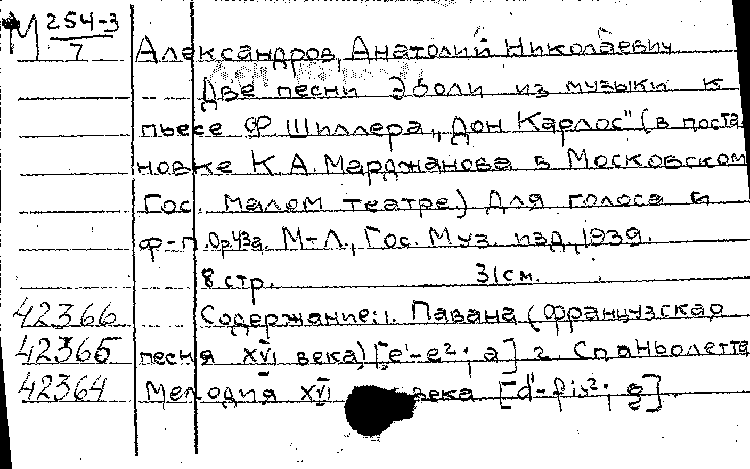 М 254-3
7
Александров, Анатолий Николаевич
Две песни Эболи из музыки к
пьесе Ф. Шиллера „Дон Карлос" (в поста
новке К. А. Марджанова в Московском
Гос. малом театре.) Для голоса и
ф-п. Ор 43а. М-Л., Гос. Муз. изд., 1939.
8 стр. 31 см.
42366 Содержание: 1. Павана (французская
42365 песня XVI века) [e'-e²; a] 2. Спаньолетта
42364 Мелодия XVI века [d'-fis²; g].